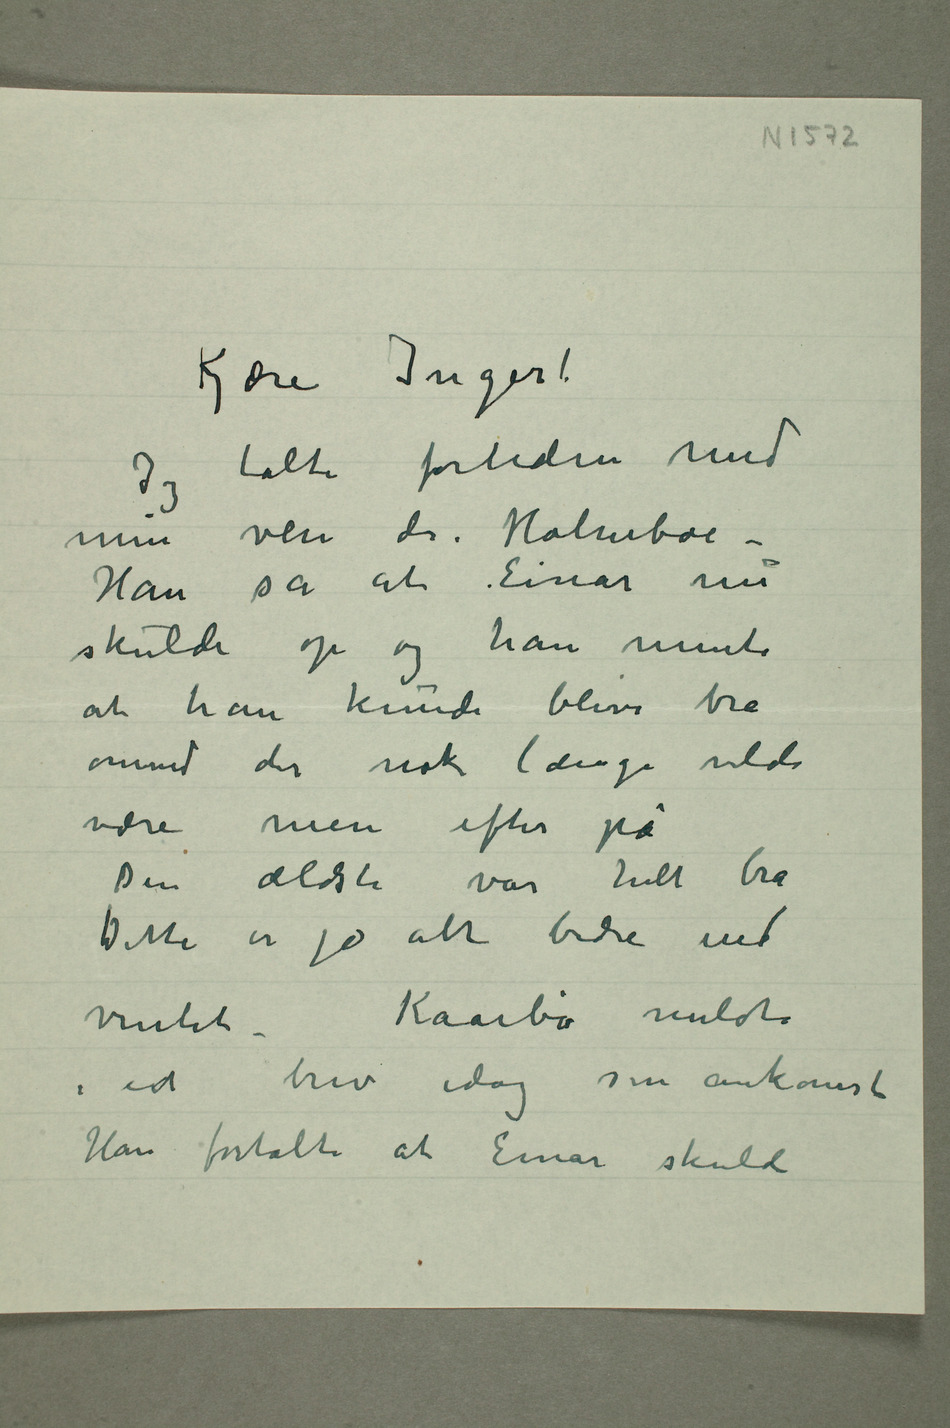 N 1572
Kjære Inger!
Jeg talte fortiden med
min ven dr. Holmboe –
Han sa at Einar nu
skulde op og han mente
at han kunde blive bra
omend der nok længe vilde
være men efter på
Den ældste var helt bra
Dette er jo alt bedre end
ventet – Kaarbø meldte
i et brev idag sin ankomst
Han fortalte at Einar skulde